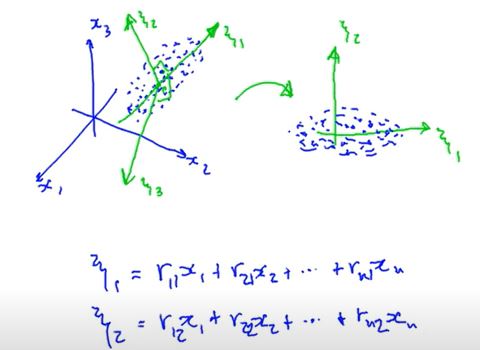 z₂
x₃
z₁
z₂
x₂
z₁
x₁
z₃
z₁ = r₁₁x₁ + r₂₁x₂ + ... + rₙ₁xₙ
z₂ = r₁₂x₁ + r₂₂x₂ + ... + rₙ₂xₙ